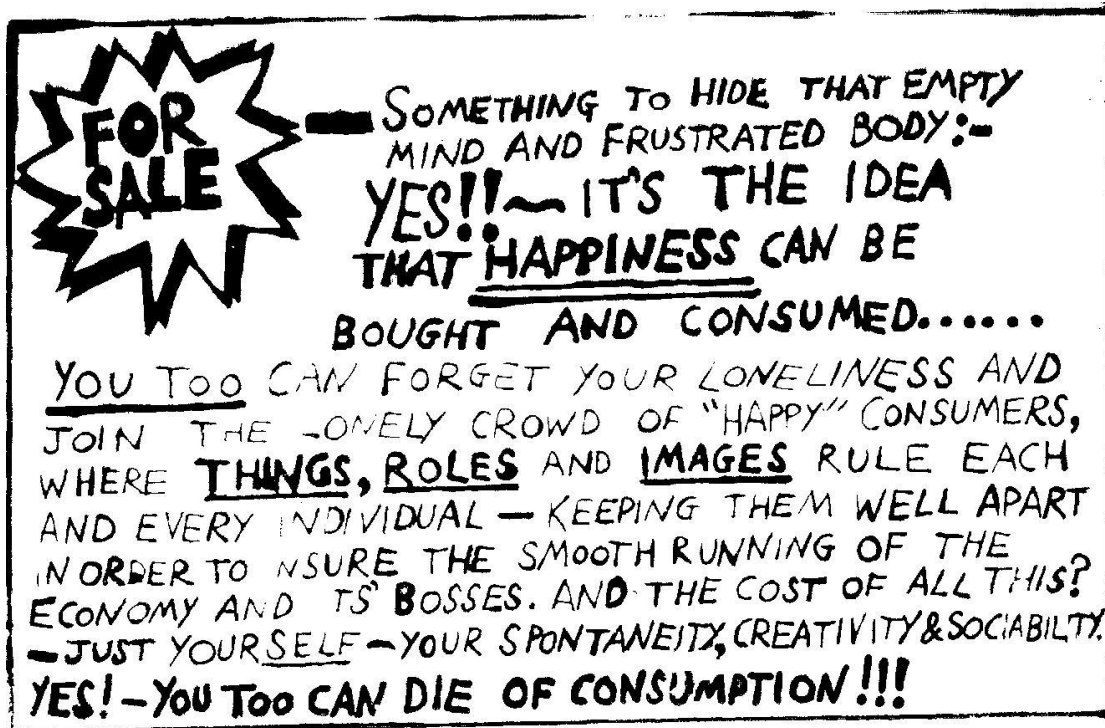 FOR
SALE
— SOMETHING TO HIDE THAT EMPTY
MIND AND FRUSTRATED BODY:-
YES!! ~ IT'S THE IDEA
THAT HAPPINESS CAN BE
BOUGHT AND CONSUMED......
YOU TOO CAN FORGET YOUR LONELINESS AND
JOIN THE LONELY CROWD OF "HAPPY" CONSUMERS,
WHERE THINGS, ROLES AND IMAGES RULE EACH
AND EVERY INDIVIDUAL — KEEPING THEM WELL APART
IN ORDER TO NSURE THE SMOOTH RUNNING OF THE
ECONOMY AND TS' BOSSES. AND THE COST OF ALL THIS?
— JUST YOURSELF — YOUR SPONTANEITY, CREATIVITY & SOCIABILTY.
YES! - YOU TOO CAN DIE OF CONSUMPTION!!!